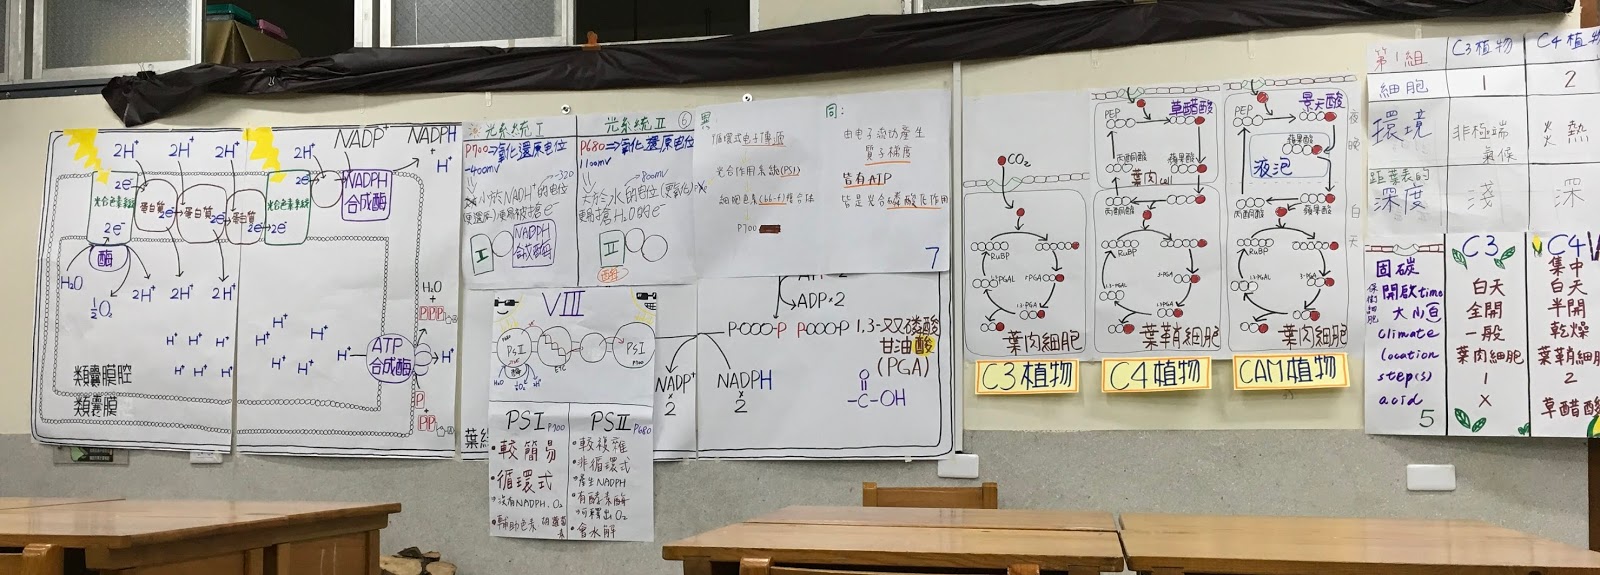 2H⁺
2H⁺
2H⁺
2H⁺
NADP⁺
NADPH
+
H⁺
2e⁻
蛋白質
2e⁻
蛋白質
2e⁻
蛋白質
2e⁻
2e⁻
NADPH
合成酶
2e⁻
酶
H₂O
½O₂
2H⁺
2H⁺
2H⁺
2H⁺
H⁺
H⁺
H⁺
H⁺
H⁺
H⁺
H⁺
H⁺
H⁺
ATP
合成酶
H₂O
+
類囊膜腔
類囊膜
光系統 I
P700⇒氧化還原電位
-400mv
-320
小於NADH⁺的電位
I
NADPH
合成酶
光系統 II
⑥
P680⇒氧化還原電位
1100mv
800mv
大於水的電位
II
異
循環式電子傳遞
光合作用系統(PSI)
P700
同:
由電子流動產生
質子梯度
皆有ATP
皆是光合磷酸化作用
7
VIII
PSII
ETC
PSI
酶
H₂O
PSI P700
•較簡易
•循環式
•沒有NADPH、O₂
PSII P680
•較複雜
•非循環式
•產生NADPH
•有酵素酶
可釋出O₂
•會水解
ADP×2
P-OOO-P POOO-P
1,3-双磷酸
甘油酸
(PGA)
NADP⁺
×
2
NADPH
×
2
O
-C-OH
CO₂
RuBP
葉肉細胞
C3植物
草醋酸
PEP
丙酮酸
蘋果酸
葉肉cell
丙酮酸
RuBP
葉鞘細胞
C4植物
景天酸
PEP
蘋果酸
液泡
丙酮酸
蘋果酸
RuBP
葉肉細胞
CAM植物
夜晚
白天
第1組
C3植物
C4植物
細胞
1
2
環境
非極端
氣候
炎熱
距葉表的
深度
淺
深
C3
C4
固碳
集中
保衛細胞
開啟time
白天
白天
大小
全開
半開
climate
一般
乾燥
location
葉肉細胞
葉鞘細胞
step(s)
1
2
acid
×
草醋酸
5